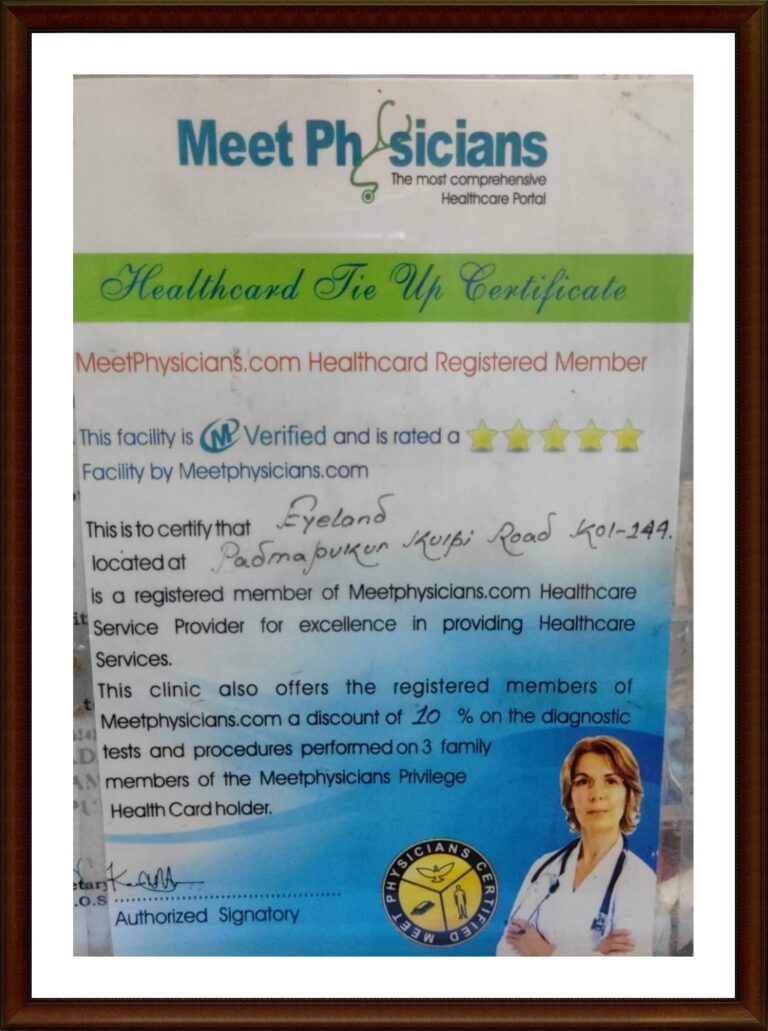 Meet Physicians
The most comprehensive
Healthcare Portal
Healthcard Tie Up Certificate
MeetPhysicians.com Healthcard Registered Member
This facility is M Verified and is rated a
Facility by Meetphysicians.com
This is to certify that Eyeland
located at Padmapukur Kulpi Road Kol-144.
is a registered member of Meetphysicians.com Healthcare
Service Provider for excellence in providing Healthcare
Services.
This clinic also offers the registered members of
Meetphysicians.com a discount of 10 % on the diagnostic
tests and procedures performed on 3 family
members of the Meetphysicians Privilege
Health Card holder.
Authorized Signatory
MEET PHYSICIANS CERTIFIED